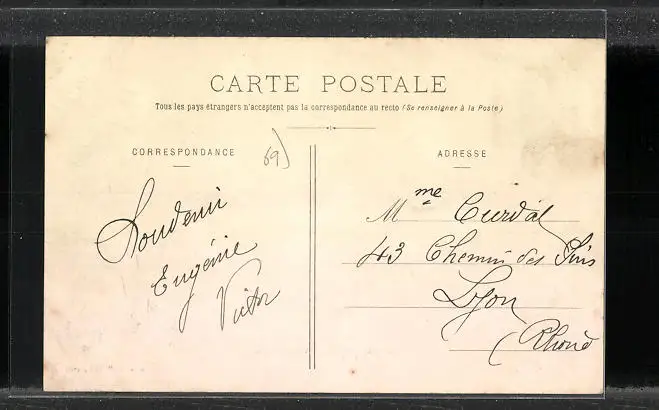 CARTE POSTALE
Tous les pays étrangers n'acceptent pas la correspondance au recto (Se renseigner à la Poste)
CORRESPONDANCE
69)
ADRESSE
Souvenir
Eugénie
Victor
Mme Curdal
43 Chemin des Pins
Lyon
(Rhône